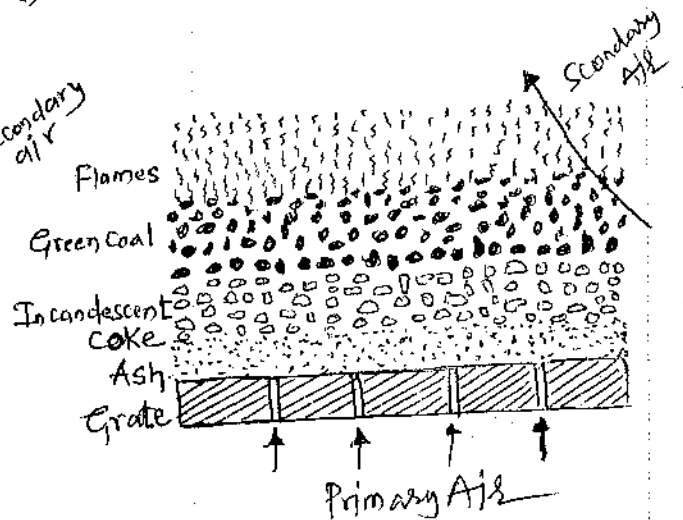 Scondary
Air
condary
air
Flames
Green Coal
Incandescent
Coke
Ash
Grate
Primary Air